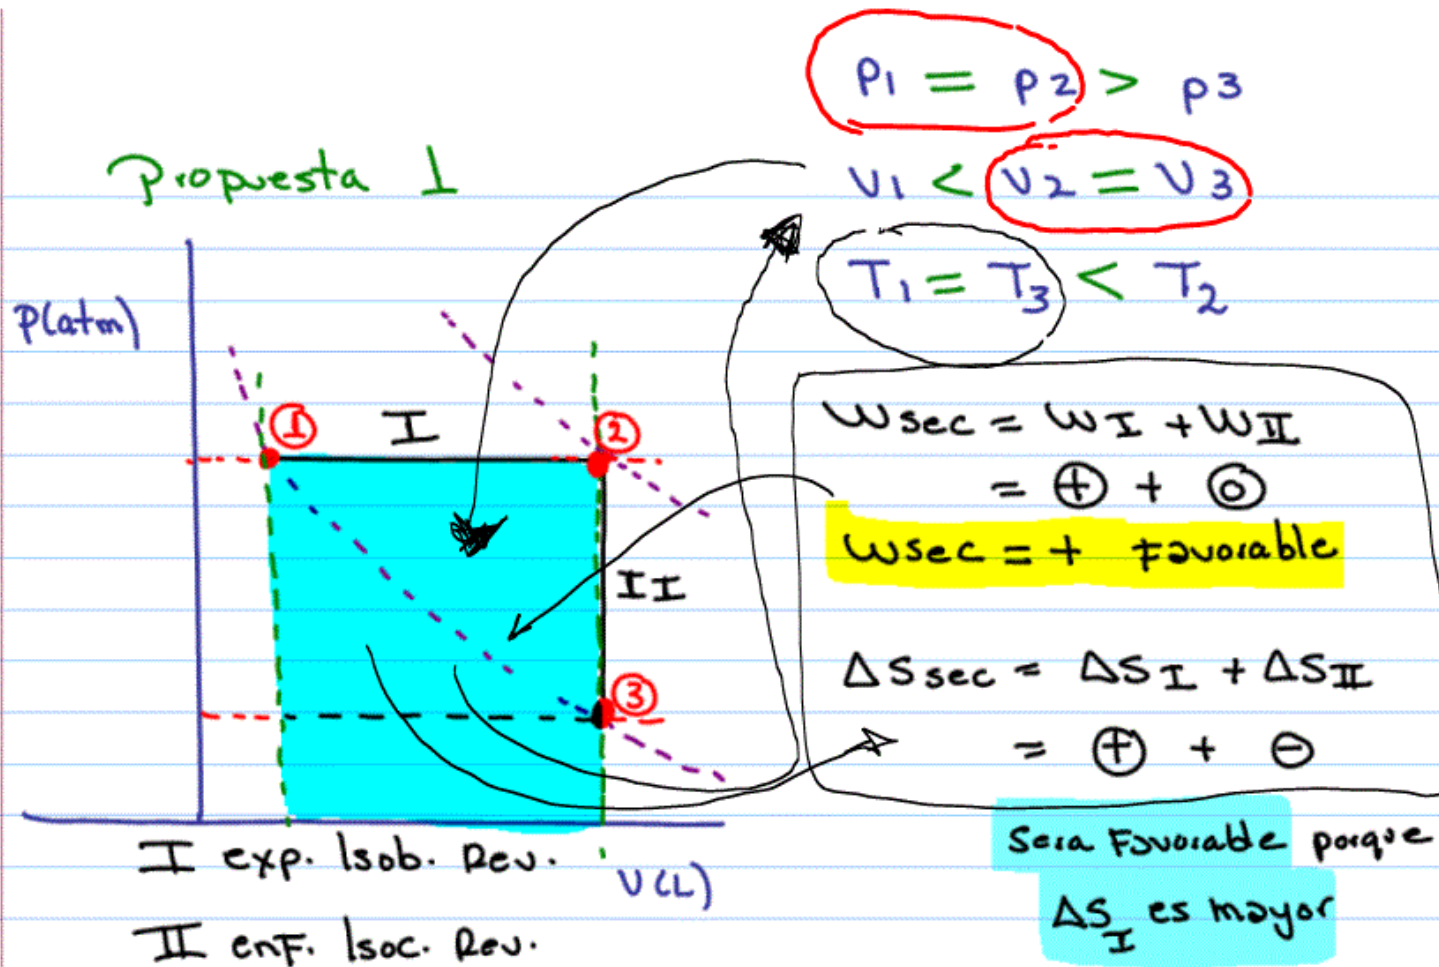 p1 = p2 > p3
Propuesta 1
V1 < V2 = V3
T1 = T3 < T2
P(atm)
1 I 2
Wsec = WI + WII
= + + 0
Wsec = + Favorable
II
ΔSsec = ΔSI + ΔSII
3
= + + -
Sera Favorable porque
ΔSI es mayor
I exp. Isob. Rev.
V(L)
II enf. Isoc. Rev.